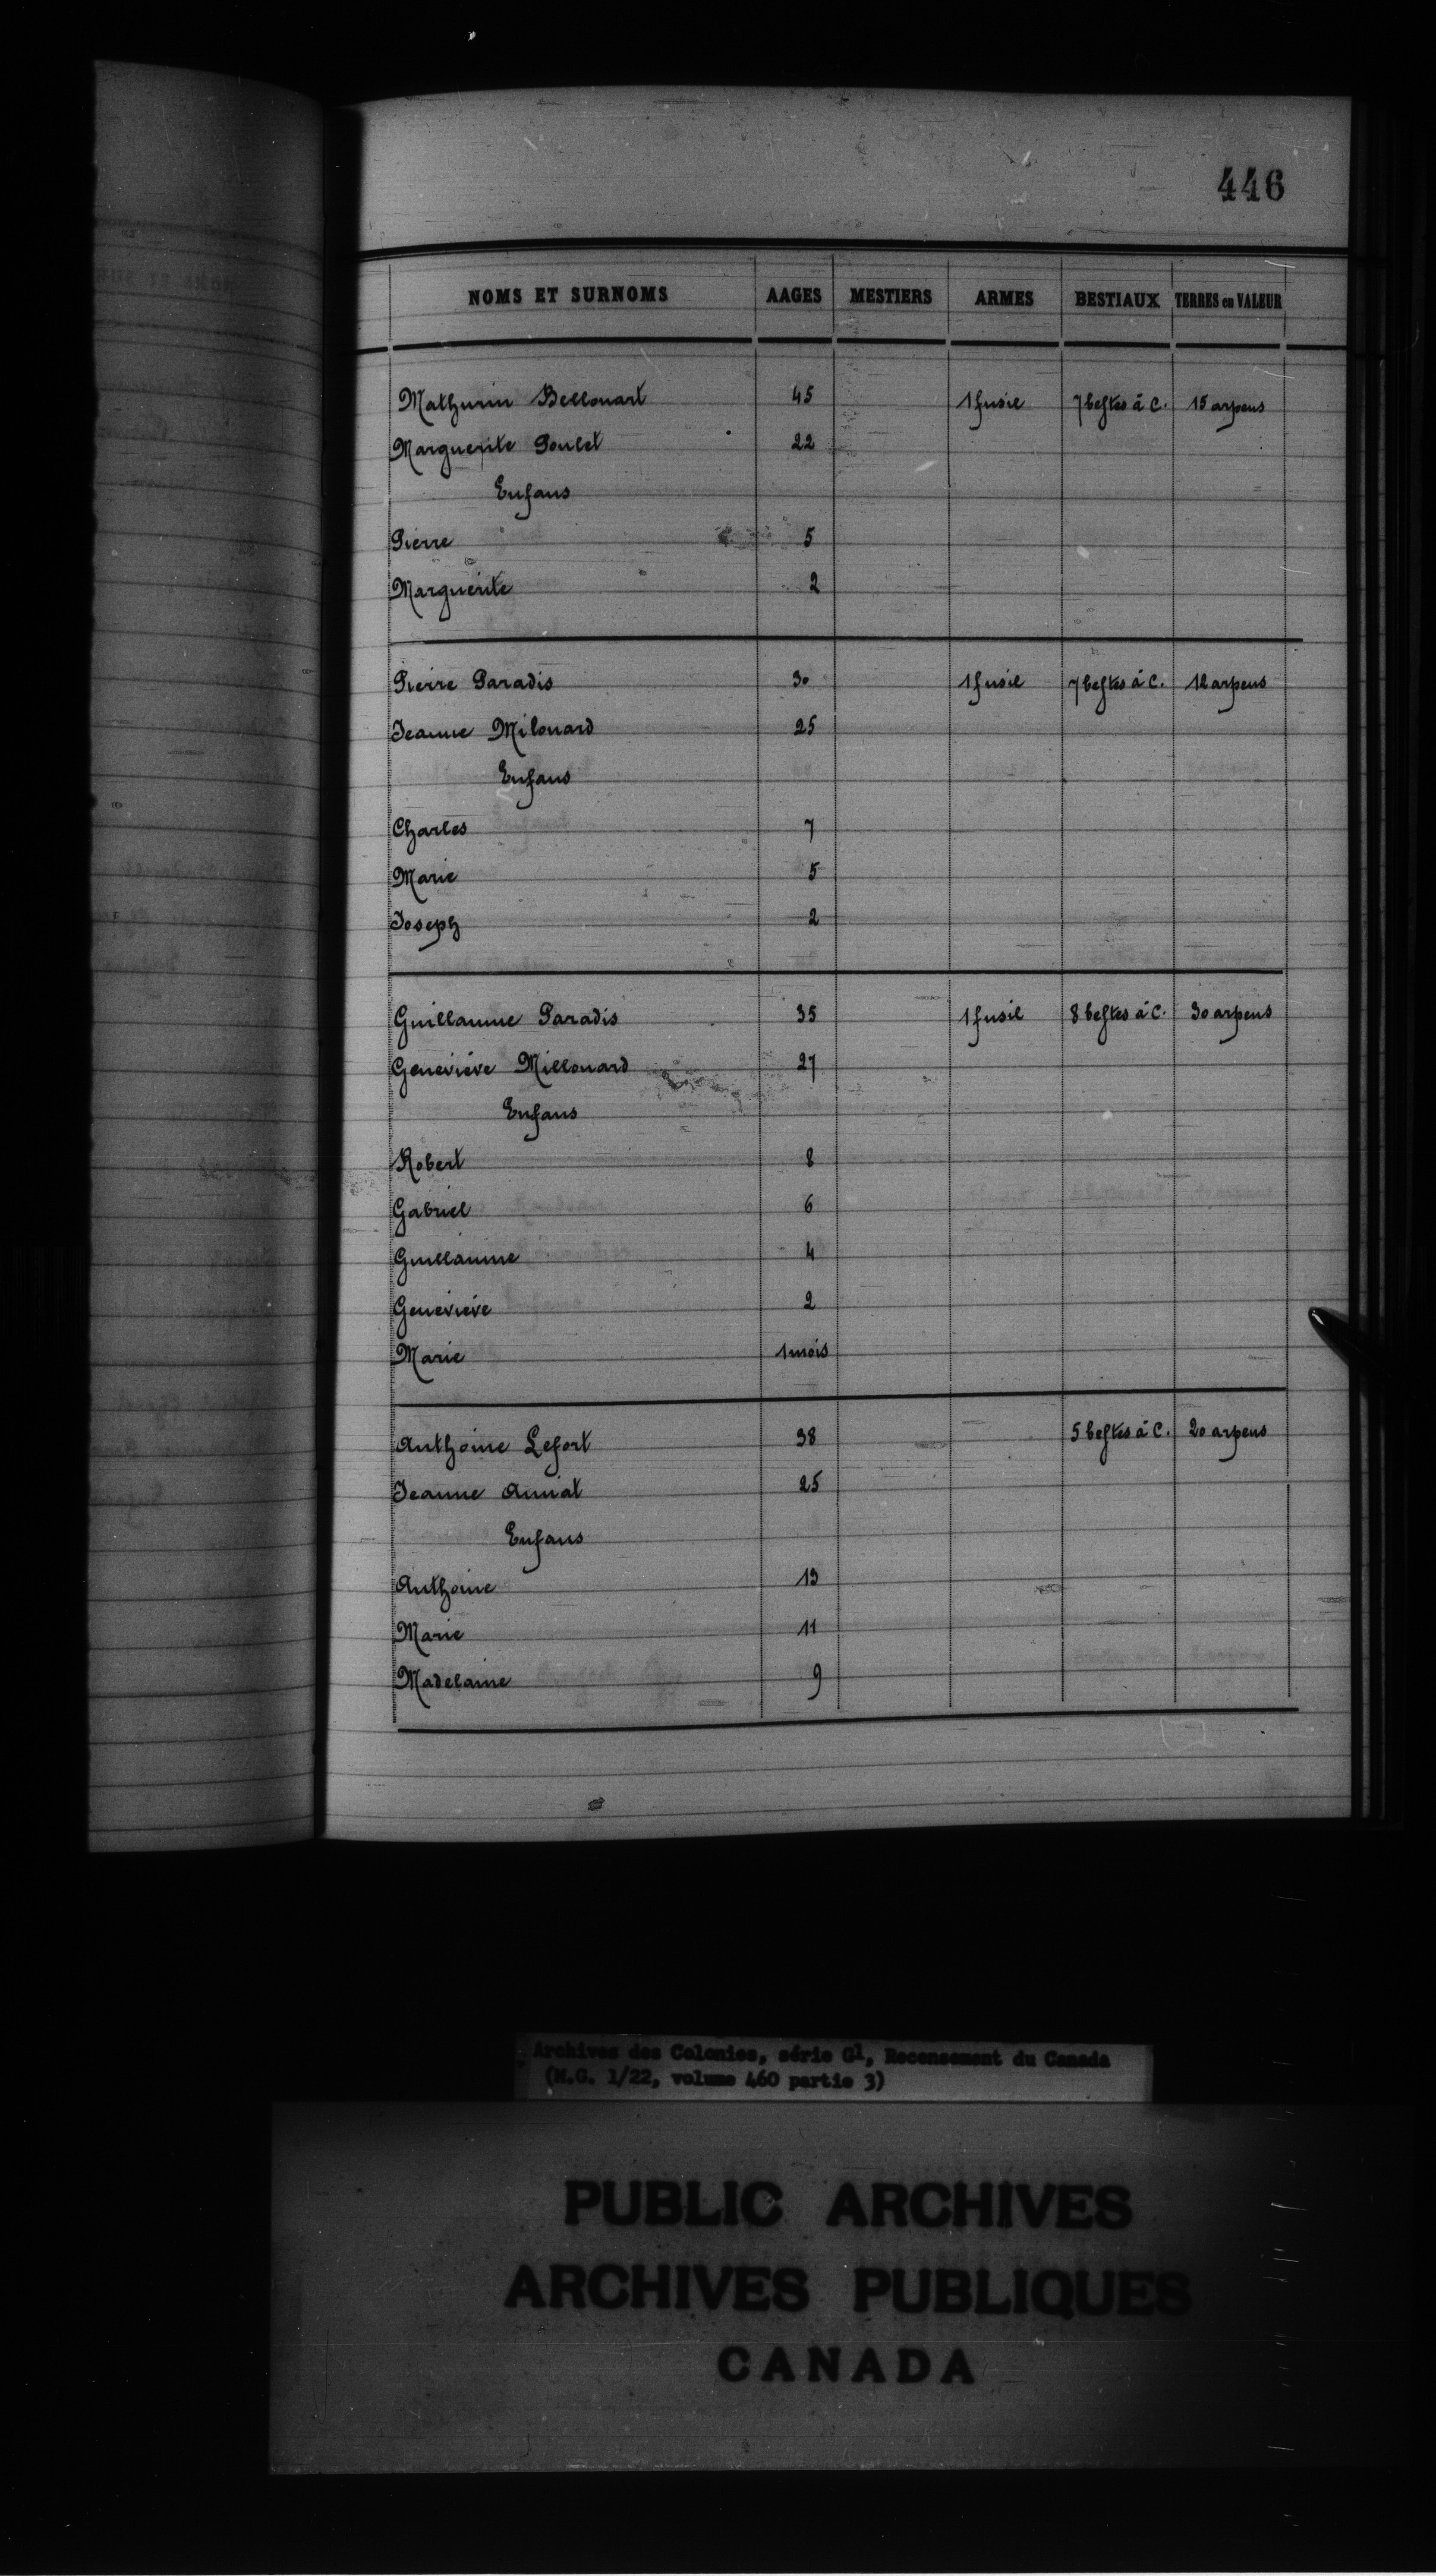 446
NOMS ET SURNOMS AAGES MESTIERS ARMES BESTIAUX TERRES en VALEUR
Mathurin Bellouart 45 1 fusil 7 bestes à C. 15 arpens
Marguerite Poulet 22
Enfans
Pierre 5
Marguerite 2
Pierre Paradis 30 1 fusil 7 bestes à C. 12 arpens
Jeanne Milouard 25
Enfans
Charles 7
Marie 5
Joseph 2
Guillaume Paradis 35 1 fusil 8 bestes à C. 30 arpens
Geneviève Millouard 27
Enfans
Robert 8
Gabriel 6
Guillaume 4
Geneviève 2
Marie 1 mois
Anthoine Lefort 38 5 bestes à C. 20 arpens
Jeanne Amiat 25
Enfans
Anthoine 13
Marie 11
Madelaine 9
Archives des Colonies, série G1, Recensement du Canada
(M.G. 1/22, volume 460 partie 3)
PUBLIC ARCHIVES
ARCHIVES PUBLIQUES
CANADA